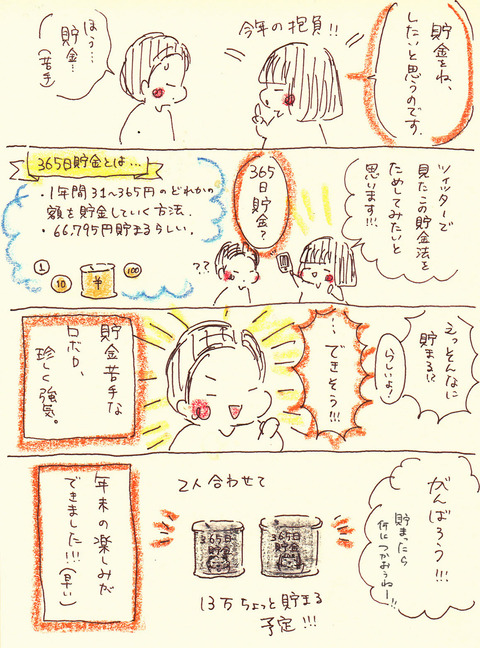 今年の抱負!!
貯金をね、
したいと思うのです
ほう…
貯金…
(苦手)
ツイッターで
見たこの貯金法を
ためしてみたいと
思います!!!
365
日
貯金?
??
365日貯金とは…
・1年間 31〜365円のどれかの
額を貯金していく方法.
・66,795円貯まるらしい.
1
10
¥
100
えっそんなに
貯まる!?
らしいよ!
…できそう!!!
貯金苦手な
ロボロ、
珍しく強気。
がんばろう!!!
貯まったら
何につかおうねー!!
2人合わせて
365日
貯金
365日
貯金
13万ちょっと貯まる
予定!!!
年末の楽しみが
できました!!!(早い)